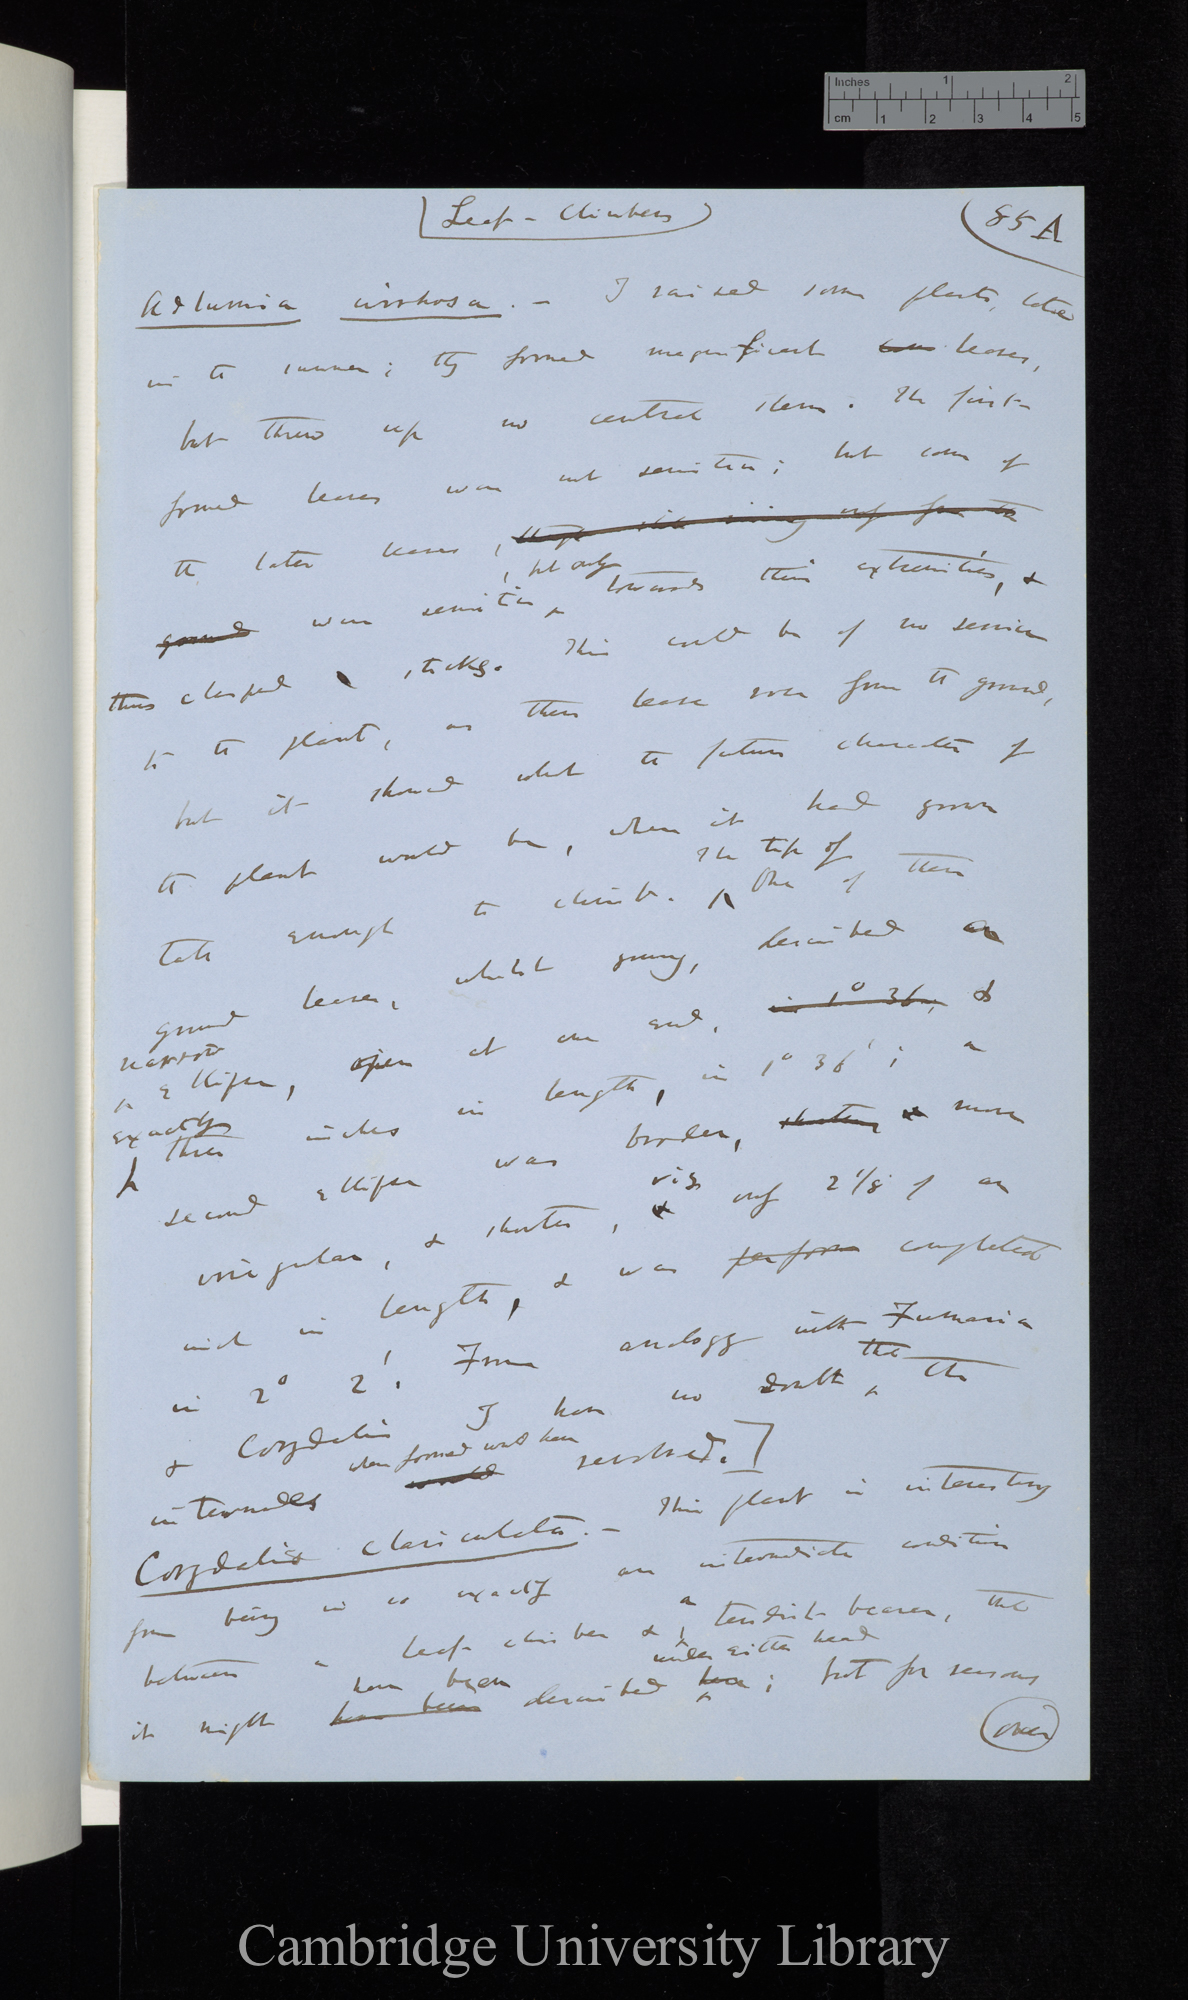 Inches 1 2
cm 1 2 3 4 5
Leaf-Climbers
85 A
Adlumia cirrhosa. — I raised some plants, late
in the summer; they formed magnificent leaves,
but threw up no central stem. The first-
formed leaves were not sensitive; but some of
the later leaves, though still rising up from the
ground were sensitive, but only towards their extremities, &
thus clasped sticks. This could be of no service
to the plant, as these leaves rose from the ground,
but it showed what the future character of
the plant would be, when it had grown
tall enough to climb. The tip of One of these
ground leaves, whilst young, described a
narrow ellipse, open at one end, in 1° 36', &
exactly three inches in length, in 1° 36'; a
second ellipse was broader, shorter & more
irregular, & shorter, viz only 2 1/8 of an
inch in length, & was perform completed
in 2° 2'. From analogy with Fumaria
& Corydalis I have no doubt, the the
internodes would when formed would have revolved.]
Corydalis claviculata. — This plant is interesting
from being in so exactly an intermediate condition
between a leaf-climber & a tendril-bearer, that
it might have been have been described here under either head; but for reasons
over
Cambridge University Library